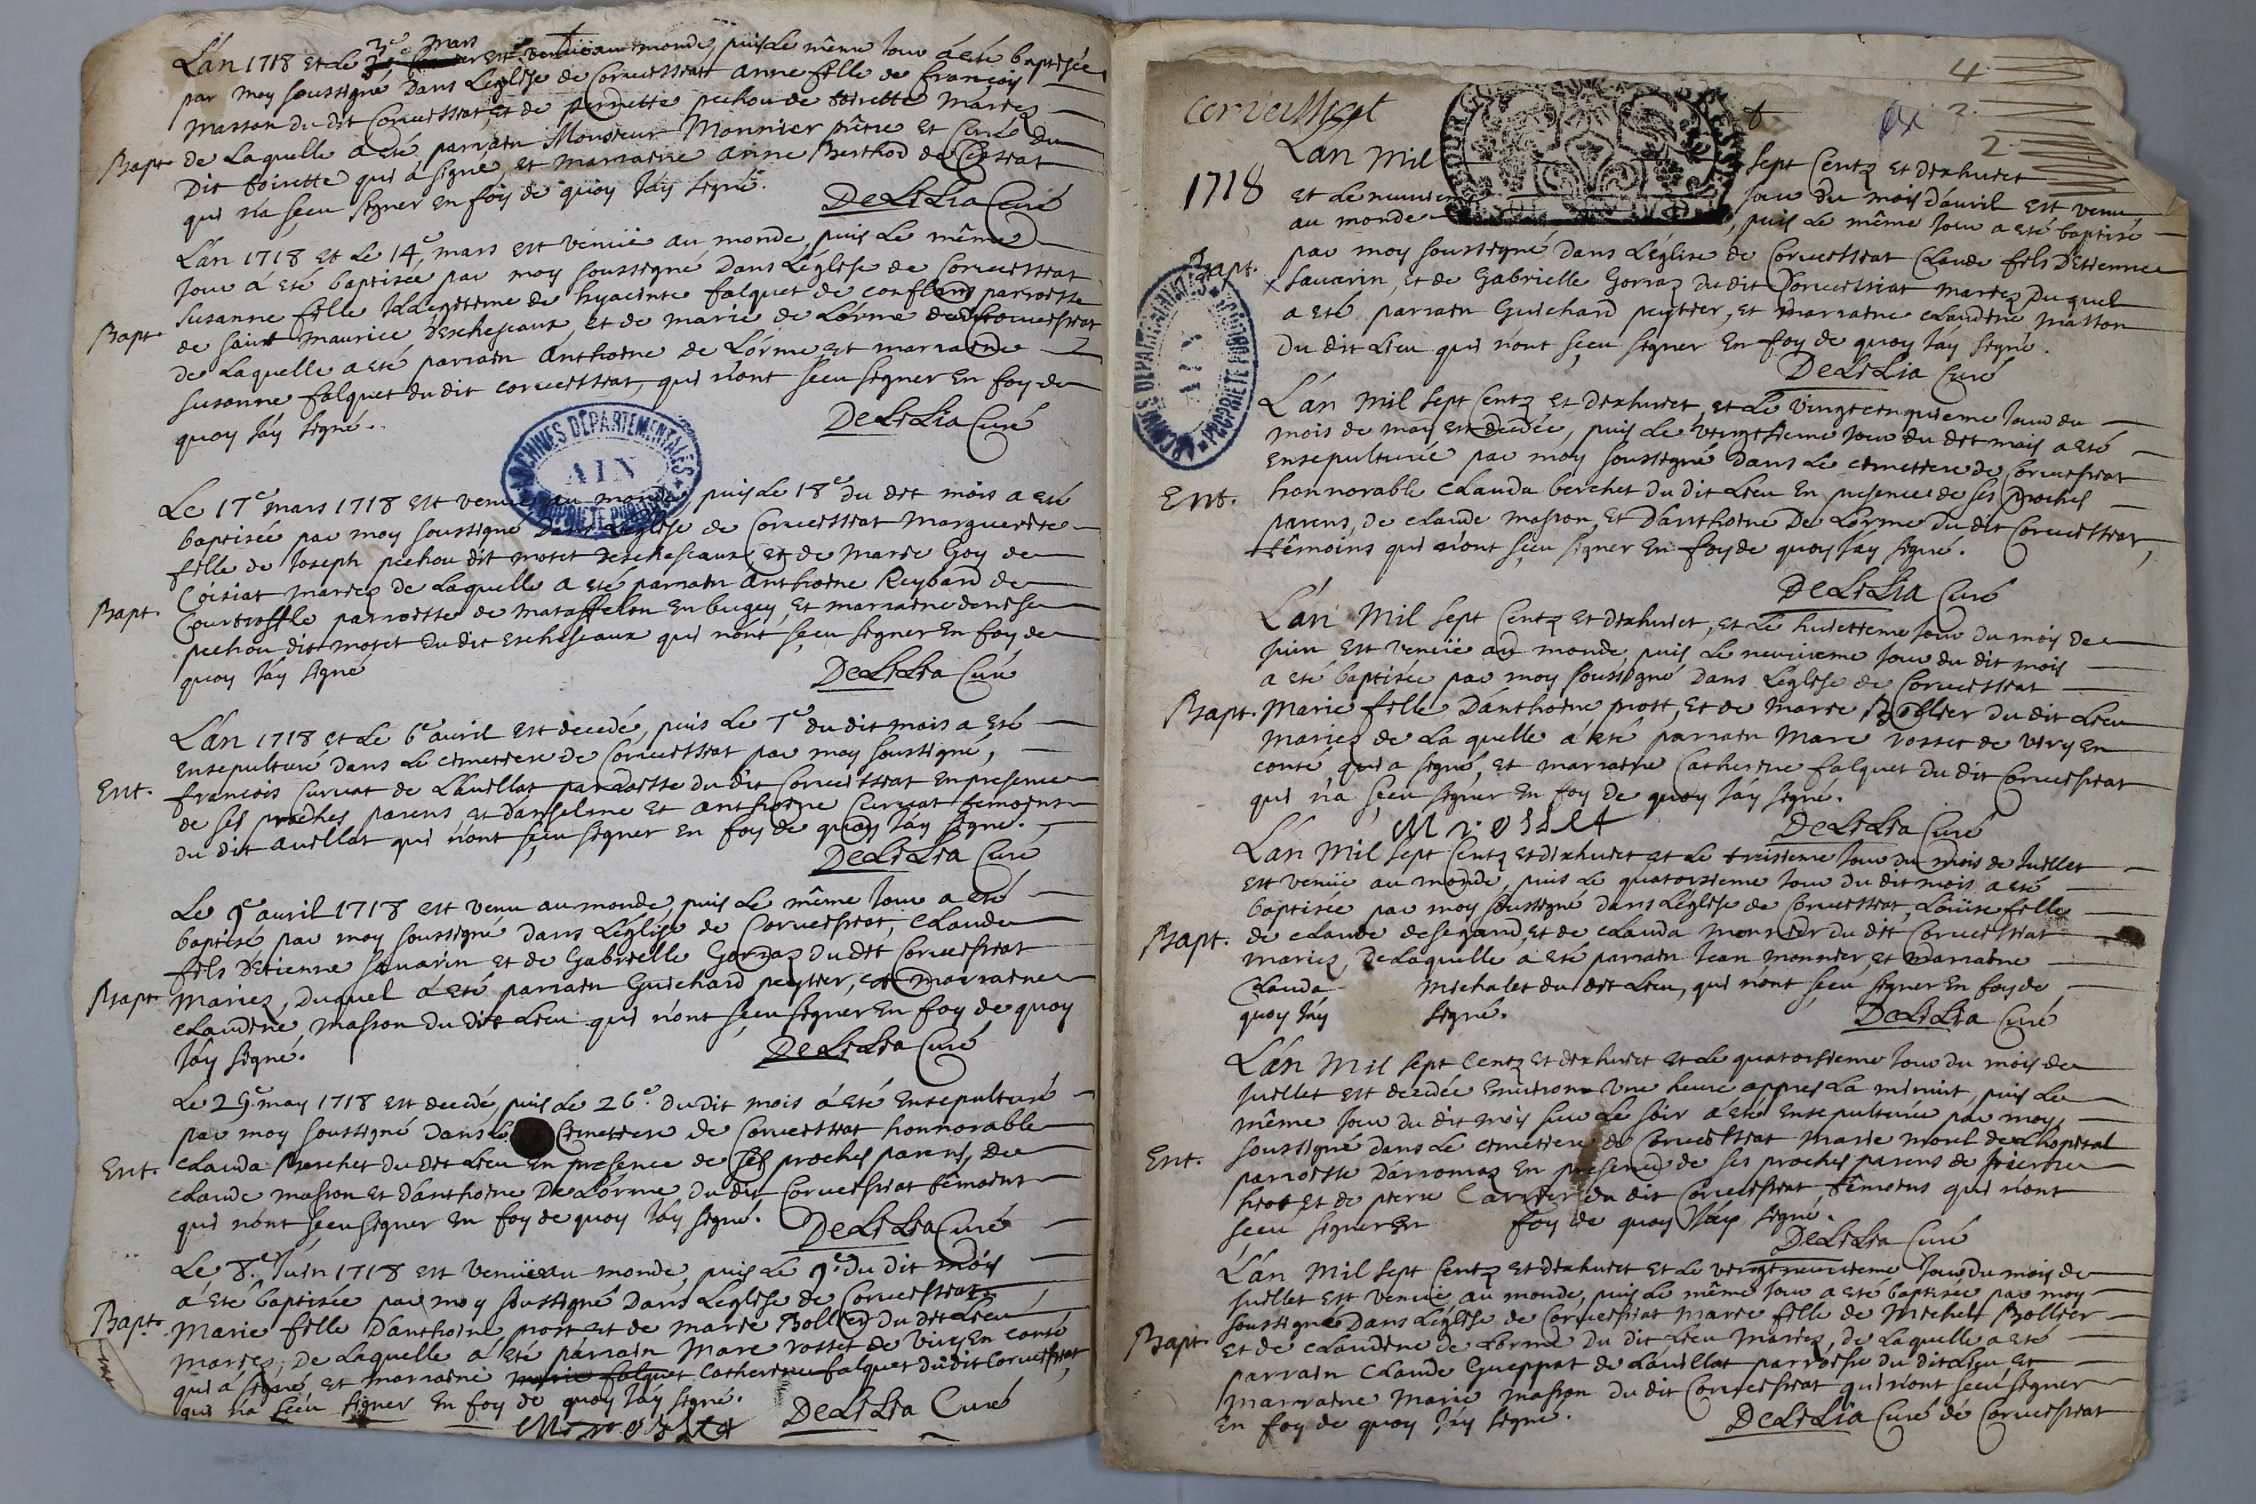 3e mars
L'an 1718 et le est venüe au monde, puis le même jour a eté baptisée
par moy soussigné dans l'eglise de Corveissiat anne fille de françois
masson du dit Corveissiat, et de pernette pechou de toirette mariez
Bapt. de laquelle a eté parrain Monsieur Monnier prêtre et Curé du
dit toirette qui a signé, et marraine anne Berthod de Ceissiat
qui n'a sçeu signer en foy de quoy j'ay signé.
DeLiLia Curé
L'an 1718 et le 14e mars est venüe au monde, puis le même
jour à eté baptisée par moy soussigné dans l'eglise de Corveissiat
susanne fille illegitime de hyacinte falquet de conflans parroisse
Bapt. de saint maurice d'escheseaux, et de marie de Lorme du dit Corveissiat
de laquelle a eté parrain anthoine de Lorme et marraine
susanne falquet du dit corveissiat, qui n'ont sceu signer en foy de
quoy j'ay signé.
DeLiLia Curé
ARCHIVES DEPARTEMENTALES
AIN
PROPRIETE PUBLIQUE
Le 17e mars 1718 est venüe au monde, puis le 18e du dit mois a eté
baptisée par moy soussigné dans l'eglise de Corveissiat marguerite
fille de Joseph pechou dit moret d'escheseaux et de Marie Goy de
Coisiat mariez de laquelle a eté parrain anthoine Reybard de
Bapt. parroisse de mataffelon en bugey, et marraine denise
pechou dit moret du dit escheseaux qui n'ont sçeu signer en foy de
quoy j'ay signé
DeLiLia Curé
L'an 1718 et le 6e avril est decedé, puis le 7e du dit mois a eté
ensepulturé dans le cimetiere de Corveissiat par moy soussigné,
Ent. francois Curvat de L'avillat parroisse du dit Corveissiat en presence
de ses proches parens, et d'anselme et anthoine Curvat temoins
du dit avillat qui n'ont sçeu signer en foy de quoy j'ay signé.
DeLiLia Curé
Le 9e avril 1718 est venu au monde puis le même jour a eté
baptisé par moy soussigné dans l'eglise de Corveissiat, Claude
fils d'Etienne savarin et de Gabrielle Gorraz du dit Corveissiat
Bapt. mariez, duquel a eté parrain Guichard peytier, et marraine
claudine masson du dit Lieu qui n'ont sçeu signer en foy de quoy
j'ay signé.
DeLiLia Curé
Le 25e may 1718 est decedé, puis le 26e du dit mois a eté ensepulturé
par moy soussigné dans le cimetiere de Corveissiat honnorable
Ent. clauda Berchet du dit Lieu en presence de ses proches parens, de
claude masson et d'anthoine De Lorme du dit Corveissiat têmoins
qui n'ont sçeu signer en foy de quoy j'ay signé.
DeLiLia Curé
Le 8e Juin 1718 est venüe au monde, puis le 9e du dit mois
a eté baptisée par moy soussigné dans l'eglise de Corveissiat
Bapt. Marie fille d'anthoine prost et de marie Bollier du dit Lieu
mariez, de laquelle a eté parrain Marc rosset de viry en conté
qui a signé et marraine marie falquet Catherine falquet du dit Corveissiat,
qui n'a sçeu signer en foy de quoy j'ay signé.
M rosset
DeLiLia Curé
4
2
2
corveissiat
1718
L'an Mil sept Centz et dixhuict
et le neuvieme jour du mois d'avril est venu
au monde, puis le même jour a eté baptisé
Bapt. par moy soussigné dans l'eglise de Corveissiat Claude fils d'Etienne
savarin, et de Gabrielle Gorraz du dit Corveissiat mariez, duquel
a eté parrain Guichard peytier, et marraine claudine masson
du dit Lieu qui n'ont sçeu signer en foy de quoy j'ay signé.
DeLiLia Curé
ARCHIVES DEPARTEMENTALES
AIN
PROPRIETE PUBLIQUE
L'an Mil sept Centz et dixhuict, et le vingtcinquieme jour du
mois de may est decedée, puis le du dit mois a eté
ensepulturée par moy soussigné dans le cimetiere de Corveissiat
Ent. honnorable clauda berchet du dit Lieu en presence de ses proches
parens, de claude masson, et d'anthoine De Lorme du dit Corveissiat,
têmoins qui n'ont sçeu signer en foy de quoy j'ay signé.
DeLiLia Curé
L'an Mil sept Centz et dixhuict, et le huictieme jour du mois de
juin est venüe au monde, puis le neuvieme jour du dit mois
a eté baptisée par moy soussigné dans l'eglise de Corveissiat
Bapt. Marie fille d'anthoine prost, et de marie Bollier du dit Lieu
mariez de la quelle a eté parrain Marc rosset de viry en
conté, qui a signé, et marraine Catherine falquet du dit Corveissiat
qui n'a sçeu signer en foy de quoy j'ay signé.
M rosset
DeLiLia Curé
L'an Mil sept Centz et dixhuict et le treisieme jour du mois de juillet
est venüe au monde, puis le quatorsieme jour du dit mois a eté
baptisée par moy soussigné dans l'eglise de Corveissiat, Loüise fille
Bapt. de claude desegand, et de clauda monnier du dit Corveissiat
mariez, de laquelle a eté parrain Jean monnier, et marraine
Clauda michalet du dit Lieu, qui n'ont sçeu signer en foy de
quoy j'ay signé.
DeLiLia Curé
L'an Mil sept Centz et dixhuict et le quatorsieme jour du mois de
Juillet est decedée environ une heure appres la minuit, puis le
même jour du dit mois sur le soir a eté ensepulturée par moy
soussigné dans le cimetiere de Corveissiat marie morel de L'hopital
Ent. parroisse d'arromas en presence de ses proches parens de
et de pierre Carrier du dit Corveissiat, têmoins qui n'ont
sçeu signer en foy de quoy j'ay signé.
DeLiLia Curé
L'an Mil sept Centz et dixhuict et le vingtneuvieme jour du mois de
juillet est venüe au monde, puis le même jour a eté baptisée par moy
soussigné dans l'eglise de Corveissiat marie fille de Michel Bollier
Bapt. et de claudine de Lorme du dit Lieu mariez, de laquelle a eté
parrain claude Gueppat de L'avillat parroisse du dit Lieu et
marraine Marie masson du dit Corveissiat qui n'ont sçeu signer
en foy de quoy j'ay signé.
DeLiLia Curé de Corveissiat